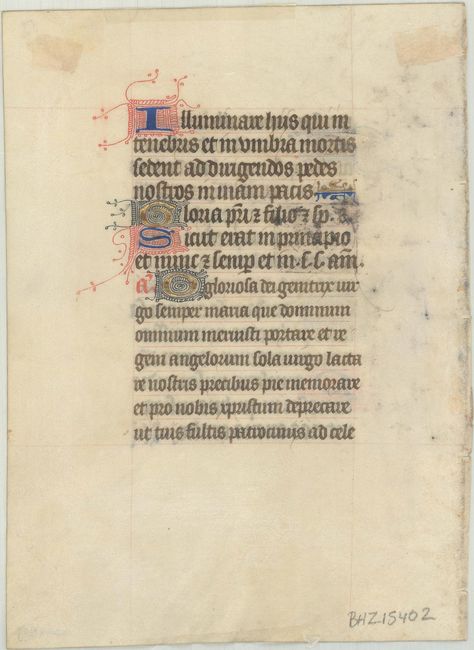 Illuminare hiis qui in
tenebris et in umbra mortis
sedent ad dirigendos pedes
nostros in uiam pacis
Gloria pri ⁊ filio ⁊ sp. s.
Sicut erat in principio
et nunc ⁊ semp et in. s. s. am̄.
an̄ O gloriosa dei genitrix uir
go semper maria que dominum
omnium meruisti portare et re
gem angelorum sola uirgo lacta
re nostris precibus pie memorare
et pro nobis xpristum deprecare
ut tuis fultis patrocinijs ad cele
BHZ15402